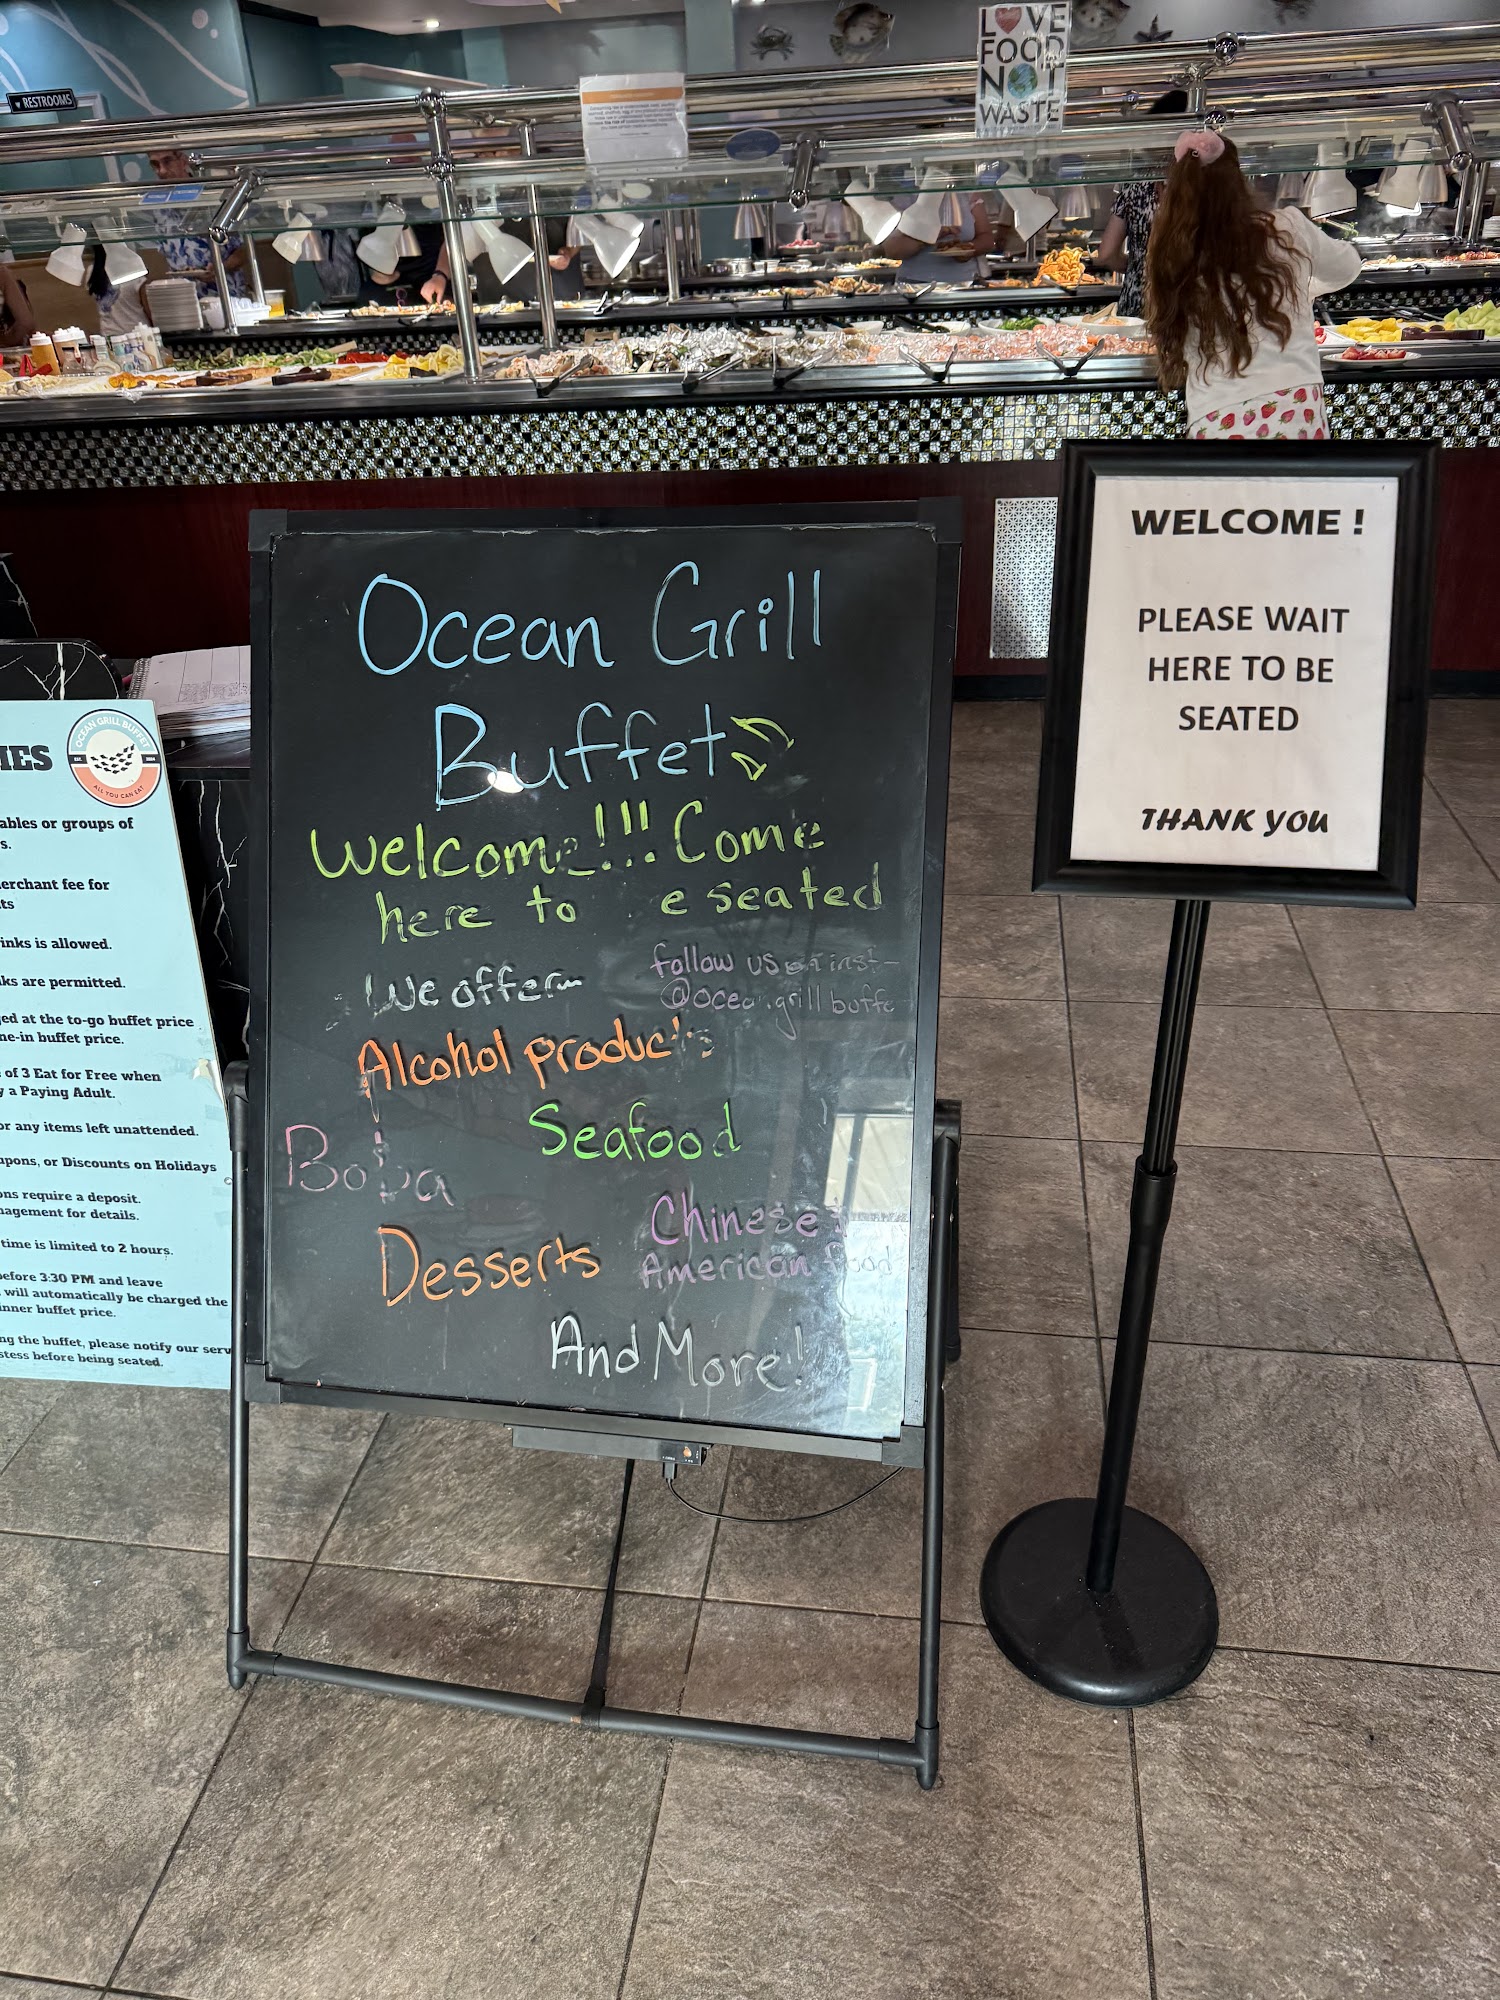 RESTROOMS
LOVE
FOOD
NOT
WASTE
Ocean Grill
Buffet
Welcome!!! Come
here to e seated
We offer
follow us inst-
Alcohol products
Seafood
Boba
Desserts
Chinese
American food
And More!
WELCOME !
PLEASE WAIT
HERE TO BE
SEATED
THANK YOU
IES
OCEAN GRILL BUFFET
ALL YOU CAN EAT
ables or groups of
s.
erchant fee for
ts
inks is allowed.
ks are permitted.
ed at the to-go buffet price
ne-in buffet price.
of 3 Eat for Free when
y a Paying Adult.
or any items left unattended.
upons, or Discounts on Holidays
ons require a deposit.
nagement for details.
time is limited to 2 hours.
efore 3:30 PM and leave
will automatically be charged the
inner buffet price.
ng the buffet, please notify our serv
stess before being seated.